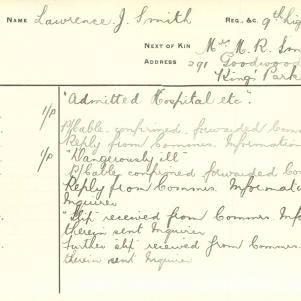 NAME Lawrence J. Smith REG. &C. 9th Lig
NEXT OF KIN Mr M. R. Sm
ADDRESS 291 Goodwood
King's Park
1/p "Admitted Hospital etc"
P/Cable confirmed, forwarded Com
Reply from Commrs. Information
1/p "Dangerously ill"
P/Cable confirmed forwarded Co
Reply from Commrs. Informat
Inquirer
"Slip received from Commrs. Info
therein sent Inquirer
Further slip received from Commrs.
therein sent Inquirer